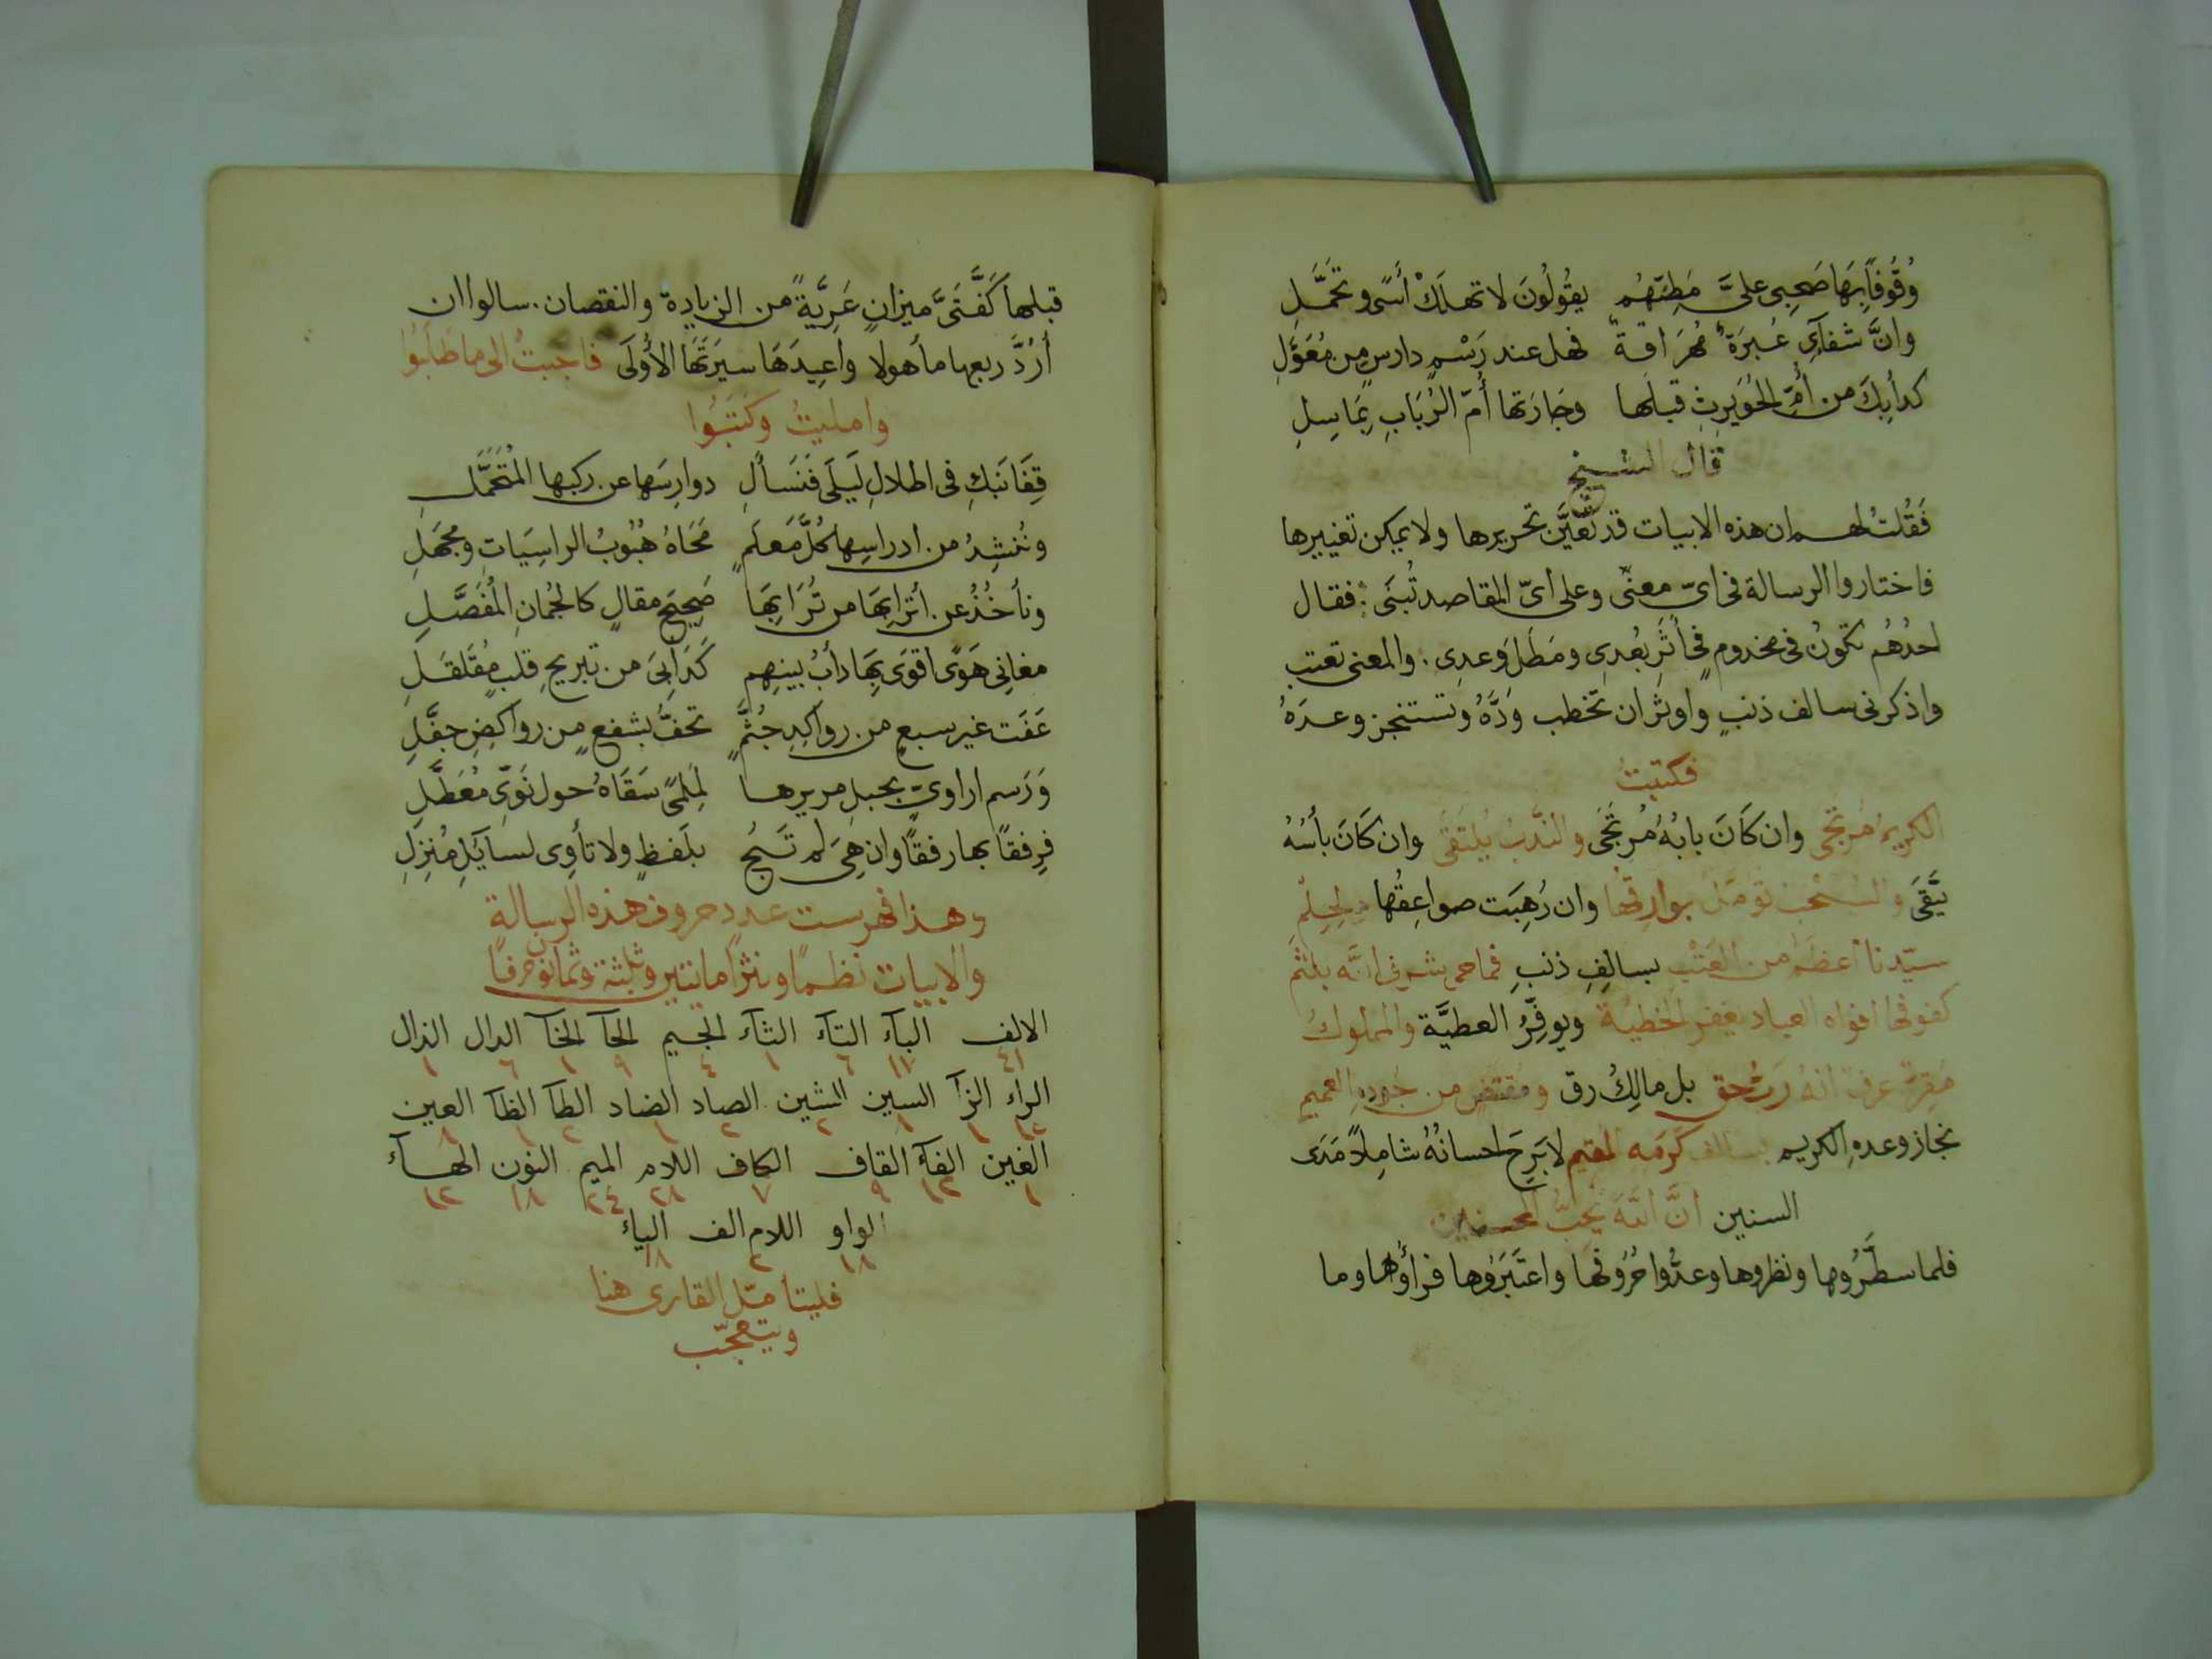 وُقُوفًا بِهَا صَحبِى عَلىَّ مَطِيَّهُم يقُولُونَ لا تهلَكْ أَسًى وتَحَمَّلِ
وانَّ شفآئِى عَبرَةٌ مُهَرَاقةٌ فهل عند رَسْمٍ دارسٍ من مُعَوَّلِ
كدأبِكَ من أُمِّ الحُوَيرِثِ قبلَها وجَارَتها أُمّ الرَّبَابِ بِمَاسِلِ
قال الشيخ
فَقُلتُ لهم ان هذه الابيات قد تعيَّن تحريرها ولا يمكن تغييرها
فاختاروا الرسالة فى اىّ معنًى وعلى اىّ المقاصد تُبنَى فقال
احدُهُم تكونُ فى مخدومٍ فى أثَرِ بُعدِى ومَطَلَ وَعدِى . والمعنى تعتب
واذكرنى سالف ذنبٍ واوثران تخطب وَدَّهُ وتستنجز وعدَهُ
فكتبت
الكريمُ مُرتَجَى وان كَانَ بابُهُ مُرتَجَى والنَّدبُ يُلتَقَى وان كَانَ بأسُهُ
يتَّقَى والسُّحْب تؤمّل بوارقُها وان رُهِبَت صواعِقُها ولِحِلمِ
سيّدنا اعظَم من العَتْبِ بسالِفِ ذنبٍ فما حمى شرفى انّه يلثمُ
كفوفها افواه العباد يغفر الخطيئة ويوفِّرُ العطيَّة والمملوكُ
مُقِرٌّ عرف انهُ رَبُّ حق بل مالِكُ رق ومُقتضٍ من جُودِهِ العميمِ
نجاز وعدهِ الكريم بسالف كَرَمه المقيم لا بَرِحَ احسانُهُ شامِلاً مَدَى
السنين انَّ اللهَ يُحِبُّ المحسنين
فلما سطَّرُوها ونظروها وعدُّوا حُرُوفَها واعتَبَرُوها فرأَوْها وما
قبلها كَفَّتَىْ ميزانٍ عَرِيَّةً من الزيادة والنقصان . سالوا ان
أَرُدَّ ربعها مأهولا واعِيدَهَا سيرَتَهَا الأُولَى فاجبتُ الى ما طَلَبُوا
وامليتُ وكَتَبُوا
قِفَا نَبكِ فى اطلالِ لَيلَى فَنَسألِ دوارِسَها عن ركبها المُتَحَمَّلِ
ونُنشِدُ من ادراسِها كُلَّ مَعلَمٍ مَحَاهُ هُبُوبُ الراسِيَاتِ ومجهَلِ
ونأخُذُ عن أترابِهَا من تُرَابِهَا صَحِيحَ مقالٍ كالجُمانِ المُفَصَّلِ
مغانِى هَوًى اقوَى بِهَا دأبُ بينِهِم كَدَابِىَ من تبريحِ قلبٍ مُقَلقَلِ
عَفَت غير سبعٍ من رواكِدِ جُثَّمٍ تحفُّ بشفعٍ من رواكضِ جفَّلِ
وَرَسم اراوىّ بحبلِ مريرها لِمَلمًى سَقَاهُ حول نَوِّىِ مُعَطَّلِ
فرِفقًا بها رفقًا وان هِىَ لَم تَبُحْ بلَفظٍ ولا تأوِى لسايَلِ مُنزِلِ
وهذا فهرست عدد حروف هذه الرسالةِ
والابيات نظمًا ونثرًا مائتين وثلثة وثمانون حرفًا
الالف البآء التآء الثآء الجيم الحآ الخآ الدال الذال
٤١ ١٧ ٦ ١ ٤ ٩ ١ ٦ ١
الراء الزآ السين الشين الصاد الضاد الطآ الظآ العين
١٢ ١ ٨ ٢ ٢ ١ ٢ ١ ٨
الغين الفآء القاف الكاف اللام الميم النون الهآء
١ ١٣ ٩ ٧ ٢٨ ٢٤ ١٨ ١٢
الواو اللام الف الياء
١٨ ٢ ١٨
فليتأمّل القارى هنا
ويتعجّب